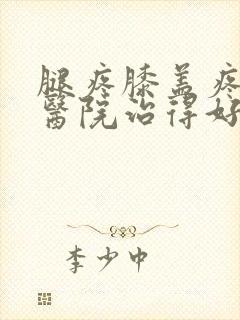 腿疼膝盖疼
醫院治得好
李少中